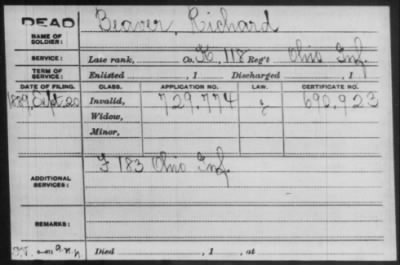 DEAD Beaver, Richard
NAME OF SOLDIER:
SERVICE: Late rank, Co. K, 118 Reg't Ohio Inf.
TERM OF SERVICE: Enlisted , 1 Discharged , 1
DATE OF FILING. CLASS. APPLICATION NO. LAW. CERTIFICATE NO.
1889, Sept. 20 Invalid, 729,774 690,923
Widow,
Minor,
F 183 Ohio Inf.
ADDITIONAL SERVICES:
REMARKS:
Died , 1 , at